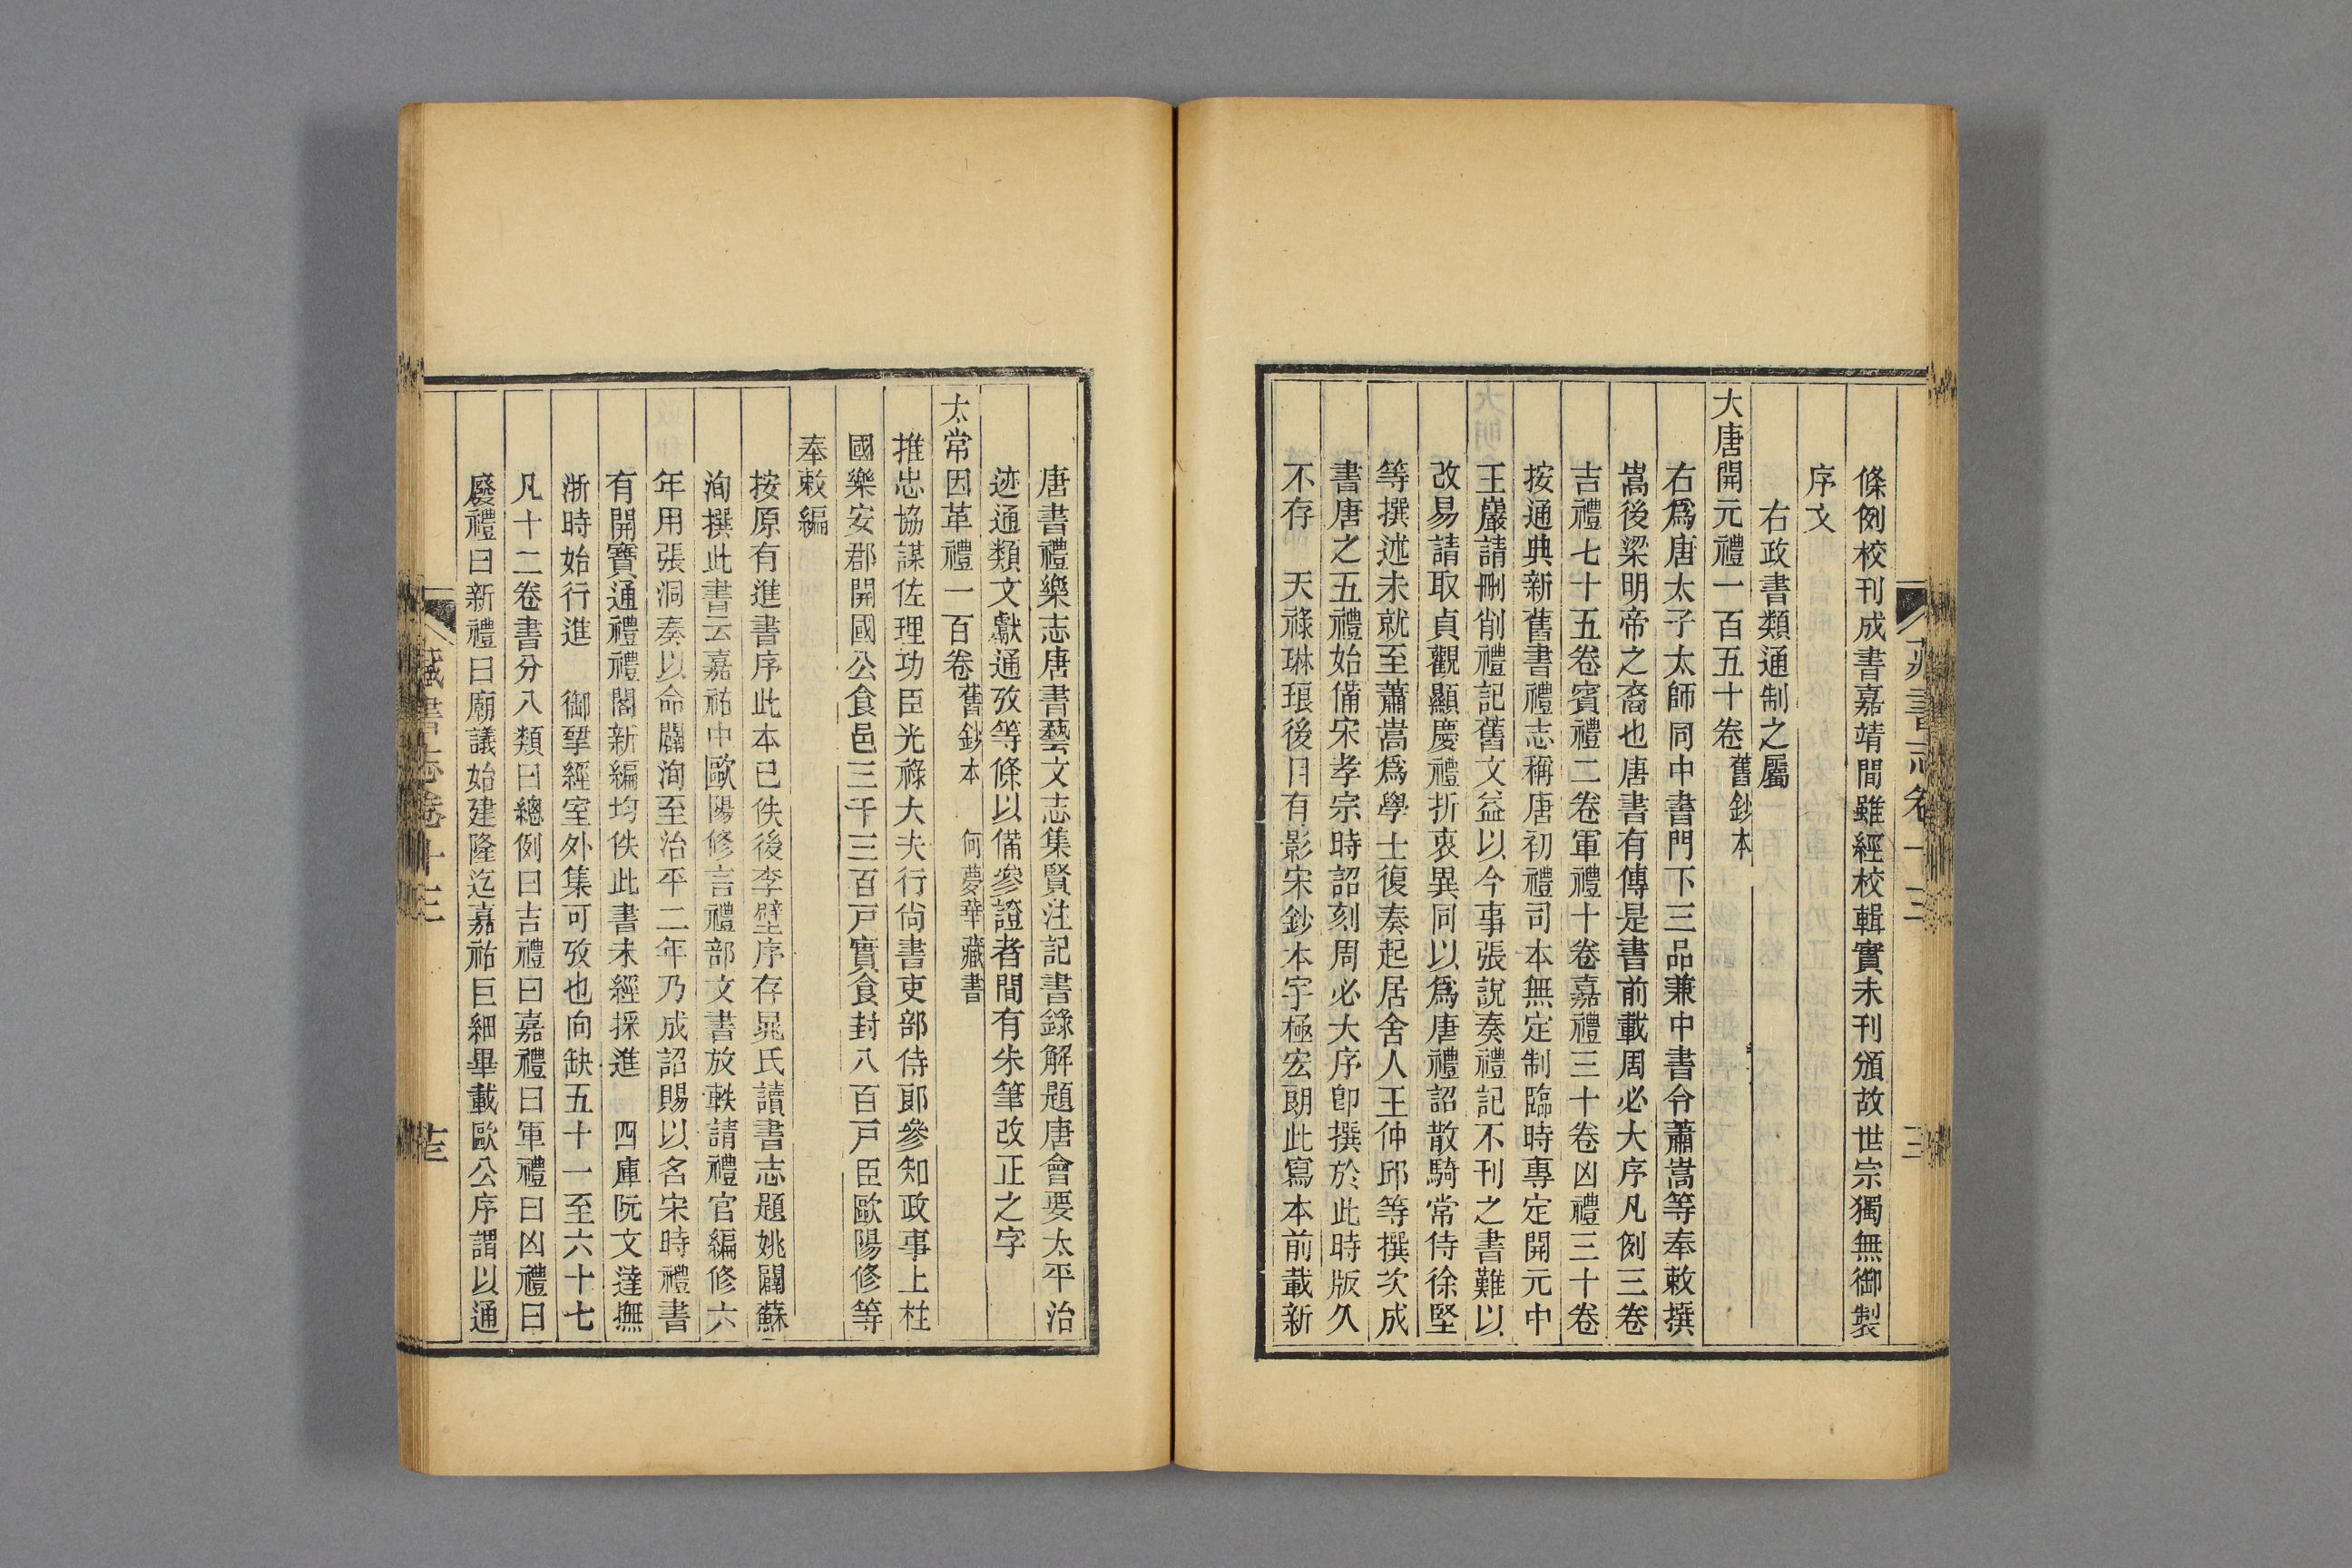 條例校刊成書嘉靖間雖經校輯實未刊頒故世宗獨無御製
序文
右政書類通制之屬
大唐開元禮一百五十卷舊鈔本
右爲唐太子太師同中書門下三品兼中書令蕭嵩等奉敕撰
嵩後梁明帝之裔也唐書有傳是書前載周必大序凡例三卷
吉禮七十五卷賓禮二卷軍禮十卷嘉禮三十卷凶禮三十卷
按通典新舊書禮志稱唐初禮司本無定制臨時專定開元中
王巖請刪削禮記舊文益以今事張說奏禮記不刊之書難以
改易請取貞觀顯慶禮折衷異同以爲唐禮詔散騎常侍徐堅
等撰述未就至蕭嵩爲學士復奏起居舍人王仲邱等撰次成
書唐之五禮始備宋孝宗時詔刻周必大序卽撰於此時版久
不存　天祿琳琅後目有影宋鈔本字極宏朗此寫本前載新
唐書禮樂志唐書藝文志集賢注記書錄解題唐會要太平治
迹通類文獻通攷等條以備參證者間有朱筆改正之字
太常因革禮一百卷舊鈔本　何夢華藏書
推忠協謀佐理功臣光祿大夫行尚書吏部侍郎參知政事上柱
國樂安郡開國公食邑三千三百戸實食封八百戸臣歐陽修等
奉敕編
按原有進書序此本已佚後李壁序存晁氏讀書志題姚闢蘇
洵撰此書云嘉祐中歐陽修言禮部文書放軼請禮官編修六
年用張洞奏以命闢洵至治平二年乃成詔賜以名宋時禮書
有開寶通禮禮閣新編均佚此書未經採進　四庫阮文達撫
浙時始行進　御揅經室外集可攷也向缺五十一至六十七
凡十二卷書分八類曰總例曰吉禮曰嘉禮曰軍禮曰凶禮曰
廢禮曰新禮曰廟議始建隆迄嘉祐巨細畢載歐公序謂以通
藏書志卷十三